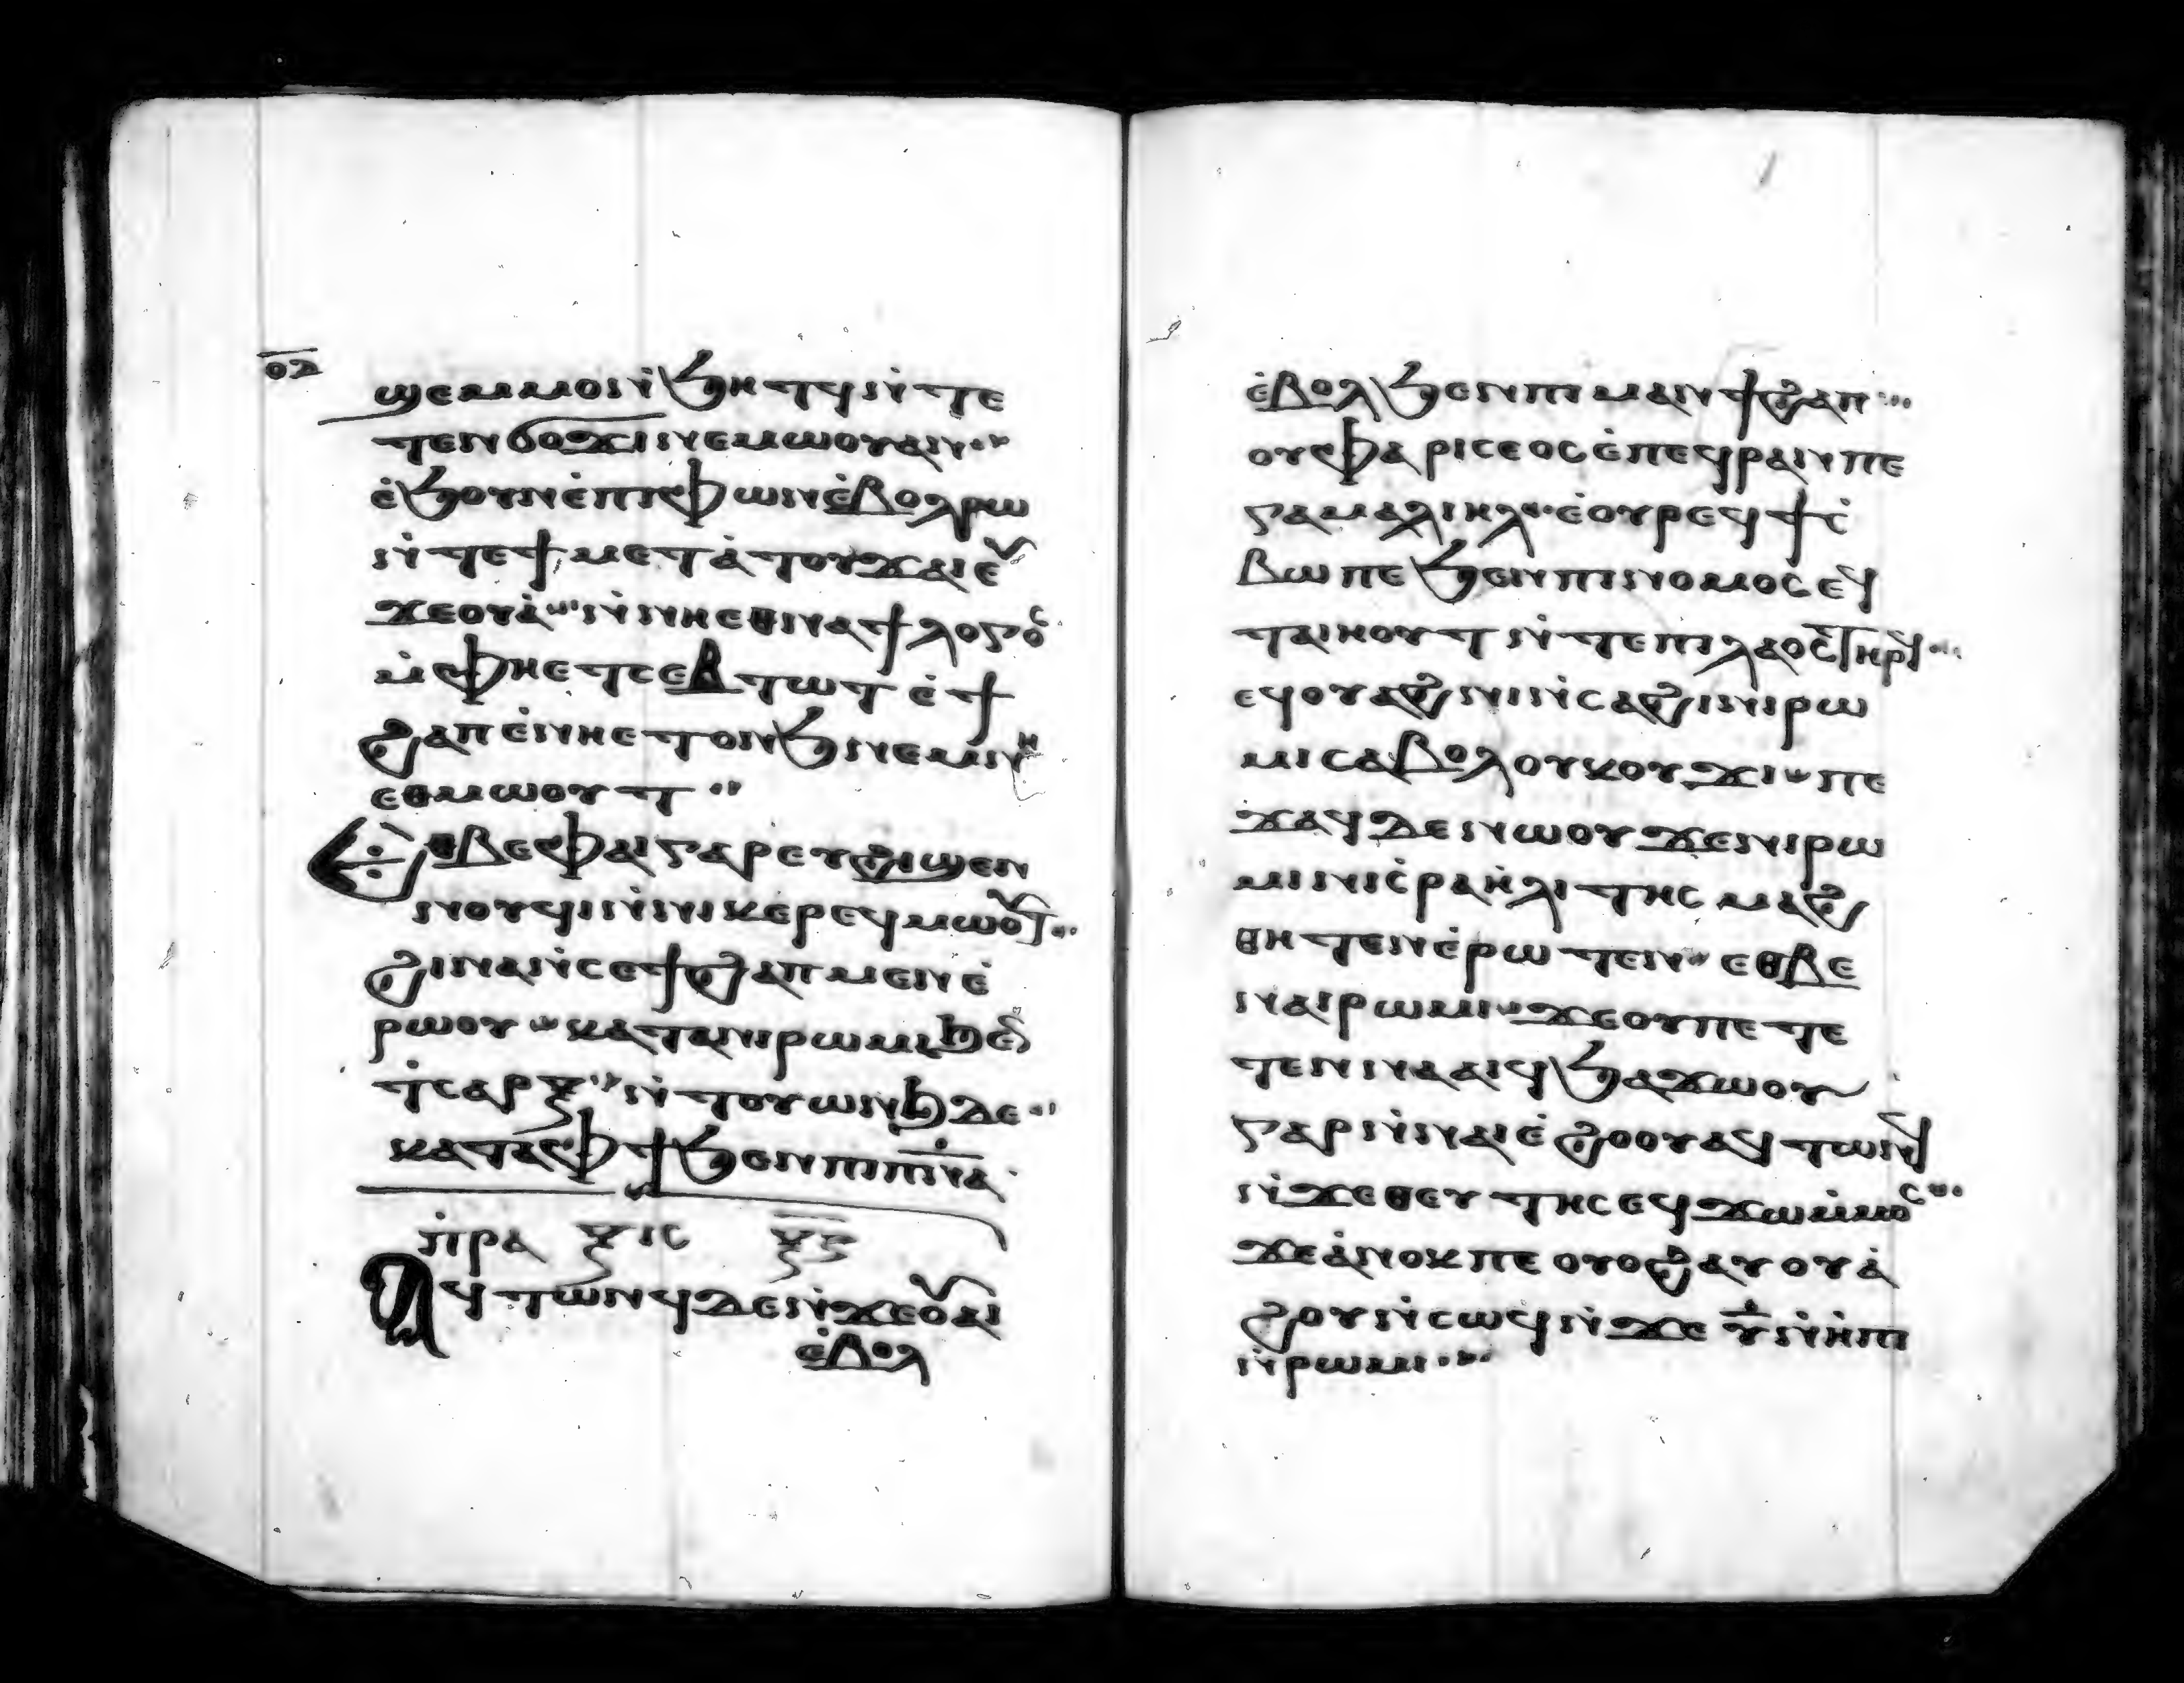 ⲟⲇ
ϣⲉⲙⲙⲟⲛ̇ϧⲏⲧϥⲛ̇ⲧⲉ
ⲧⲉⲛϭⲟϫⲓⲛⲉⲙⲱⲟⲩⲁⲛ··
ⲉ̇ϧⲟⲩⲛⲉ̇ⲡⲓⲫⲱⲛⲉ̇ⲃⲟⲗⲣⲱ
ⲛ̇ⲧⲉϯⲙⲉⲧⲁ̇ⲧⲟⲩϫⲁⲓⲉⲩ
ϫⲉⲟⲩⲁ̇··ⲛ̇ⲛⲏⲉⲑⲛⲁϯⲗⲟⲅⲟⲥ
ⲙ̇ⲫⲏⲉⲧⲥⲉⲃⲧⲱⲧⲉ̇ϯ
ϩⲁⲡⲉ̇ⲛⲏⲉⲧⲟⲛϧⲛⲉⲙⲛⲏ
ⲉⲑⲙⲱⲟⲩⲧ··
ⲉⲑⲃⲉⲫⲁⲓⲅⲁⲣⲉⲩϩⲓϣⲉⲛ
ⲛⲟⲩϥⲓⲛ̇ⲛⲓⲕⲉⲣⲉϥⲙⲱⲟⲩⲧ··
ϩⲓⲛⲁⲛ̇ⲥⲉϯϩⲁⲡⲙⲉⲛⲉ̇
ⲣⲱⲟⲩ··ⲕⲁⲧⲁⲛⲓⲣⲱⲙⲓϧⲉⲛ
ⲧ̇ⲥⲁⲣⲝ··ⲛ̇ⲧⲟⲩⲱⲛϧⲇⲉ··
ⲕⲁⲧⲁⲫϯϧⲉⲛⲡⲓⲡ̅ⲛ̅ⲁ̅
ⲡ̇ⲣⲁ ⲝⲓⲥ ⲝ̅ⲋ̅
ⲁϥⲧⲱⲛϥⲇⲉⲛ̇ϫⲉⲟⲩⲁⲓ
ⲉ̇ⲃⲟⲗ
ⲉ̇ⲃⲟⲗϧⲉⲛⲡⲓⲙⲁⲛϯϩⲁⲡ···
ⲟⲩⲫⲁⲣⲓⲥⲉⲟⲥⲉ̇ⲡⲉϥⲣⲁⲛⲡⲉ
ⲅⲁⲙⲁⲗⲓⲏⲗ··ⲉ̇ⲟⲩⲣⲉϥϯⲥ̇
ⲃⲱⲡⲉϧⲉⲛⲡⲓⲛⲟⲙⲟⲥⲉϥ
ⲧⲁⲓⲏⲟⲩⲧⲛ̇ⲧⲉⲡⲓⲗⲁⲟⲥⲧⲏⲣϥ···
ⲉϥⲟⲩⲁϩⲥⲁϩⲛⲓⲛ̇ⲥⲁϩⲓⲛⲓⲣⲱ
ⲙⲓⲥⲁⲃⲟⲗⲟⲩⲕⲟⲩϫⲓ··ⲡⲉ
ϫⲁϥⲇⲉⲛⲱⲟⲩϫⲉⲛⲓⲣⲱ
ⲙⲓⲛⲓⲥ̇ⲣⲁⲏ̇ⲗⲓⲧⲏⲥⲙⲁϩ
ⲑⲏⲧⲉⲛⲉ̇ⲣⲱⲧⲉⲛ··ⲉⲑⲃⲉ
ⲛⲁⲓⲣⲱⲙⲓ··ϫⲉⲟⲩⲡⲉⲧⲉ
ⲧⲉⲛⲛⲁⲁⲓϥϧⲁϫⲱⲟⲩ
ⲅⲁⲣⲛ̇ⲛⲁⲓⲉ̇ϩⲟⲟⲩⲁϥⲧⲱⲛϥ
ⲛ̇ϫⲉⲑⲉⲩⲧⲏⲥⲉϥϫⲱⲙ̇ⲙⲟⲥ···
ϫⲉⲁ̇ⲛⲟⲕⲡⲉⲟⲩⲟϩⲁⲩⲟⲩⲁ̇
ϩⲟⲩⲛ̇ⲥⲱϥⲛ̇ϫⲉⲩ̅ⲛ̇ⲏ̇ⲡⲓ
ⲛ̇ⲣⲱⲙⲓ···